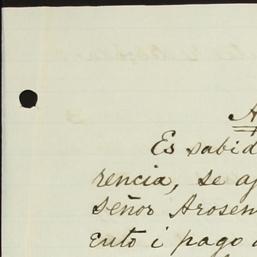 A
Es sabid
rencia, se aj
Señor Arosem
ento i pago d